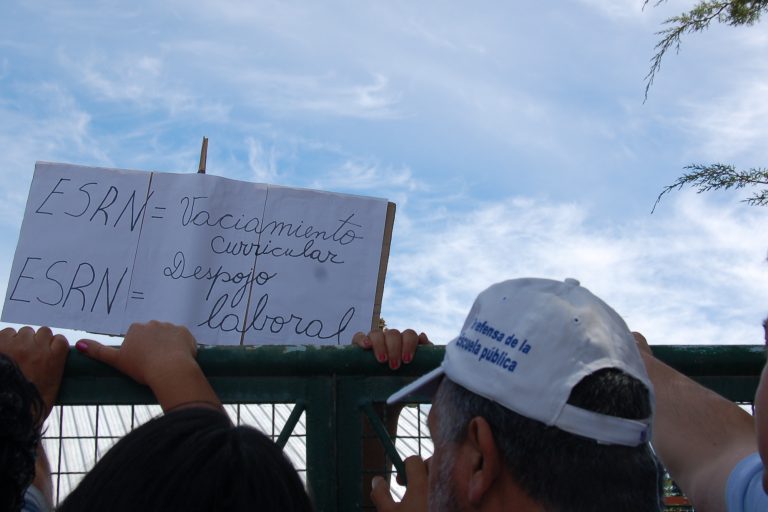 ESRN = Vaciamiento
curricular
ESRN = Despojo
laboral
efensa de la
scuela pública